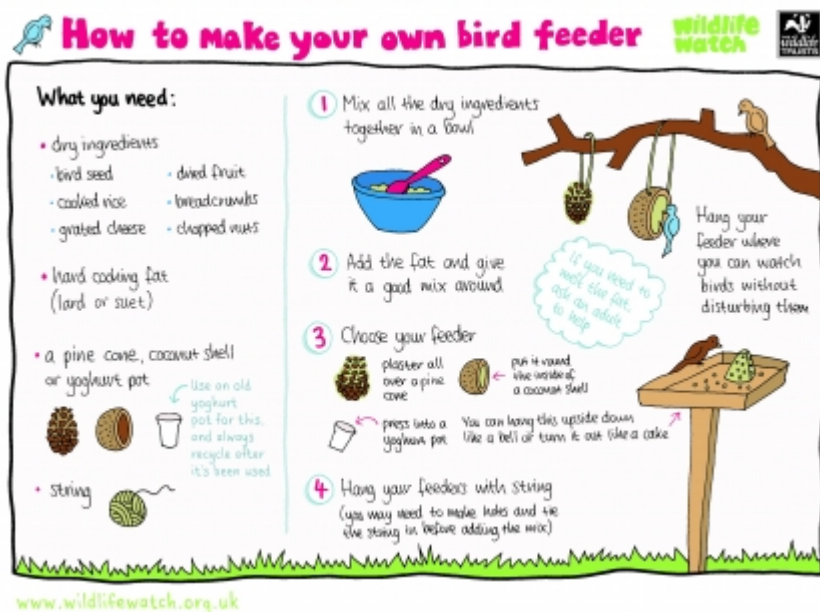 How to make your own bird feeder
wildlife
watch
wildlife
TRUSTS
What you need:
• dry ingredients
• bird seed
• dried fruit
• cooked rice
• breadcrumbs
• grated cheese
• chopped nuts
• hard cooking fat
(lard or suet)
• a pine cone, coconut shell
or yoghurt pot
use an old
yoghurt
pot for this,
and always
recycle after
it's been used
• string
1 Mix all the dry ingredients
together in a bowl
2 Add the fat and give
it a good mix around
If you need to
melt the fat,
ask an adult
to help
3 Choose your feeder
plaster all
over a pine
cone
put it round
the inside of
a coconut shell
press into a
yoghurt pot
You can hang this upside down
like a bell or turn it out like a cake
4 Hang your feeders with string
(you may need to make holes and tie
the string in before adding the mix)
Hang your
feeder where
you can watch
birds without
disturbing them
www.wildlifewatch.org.uk